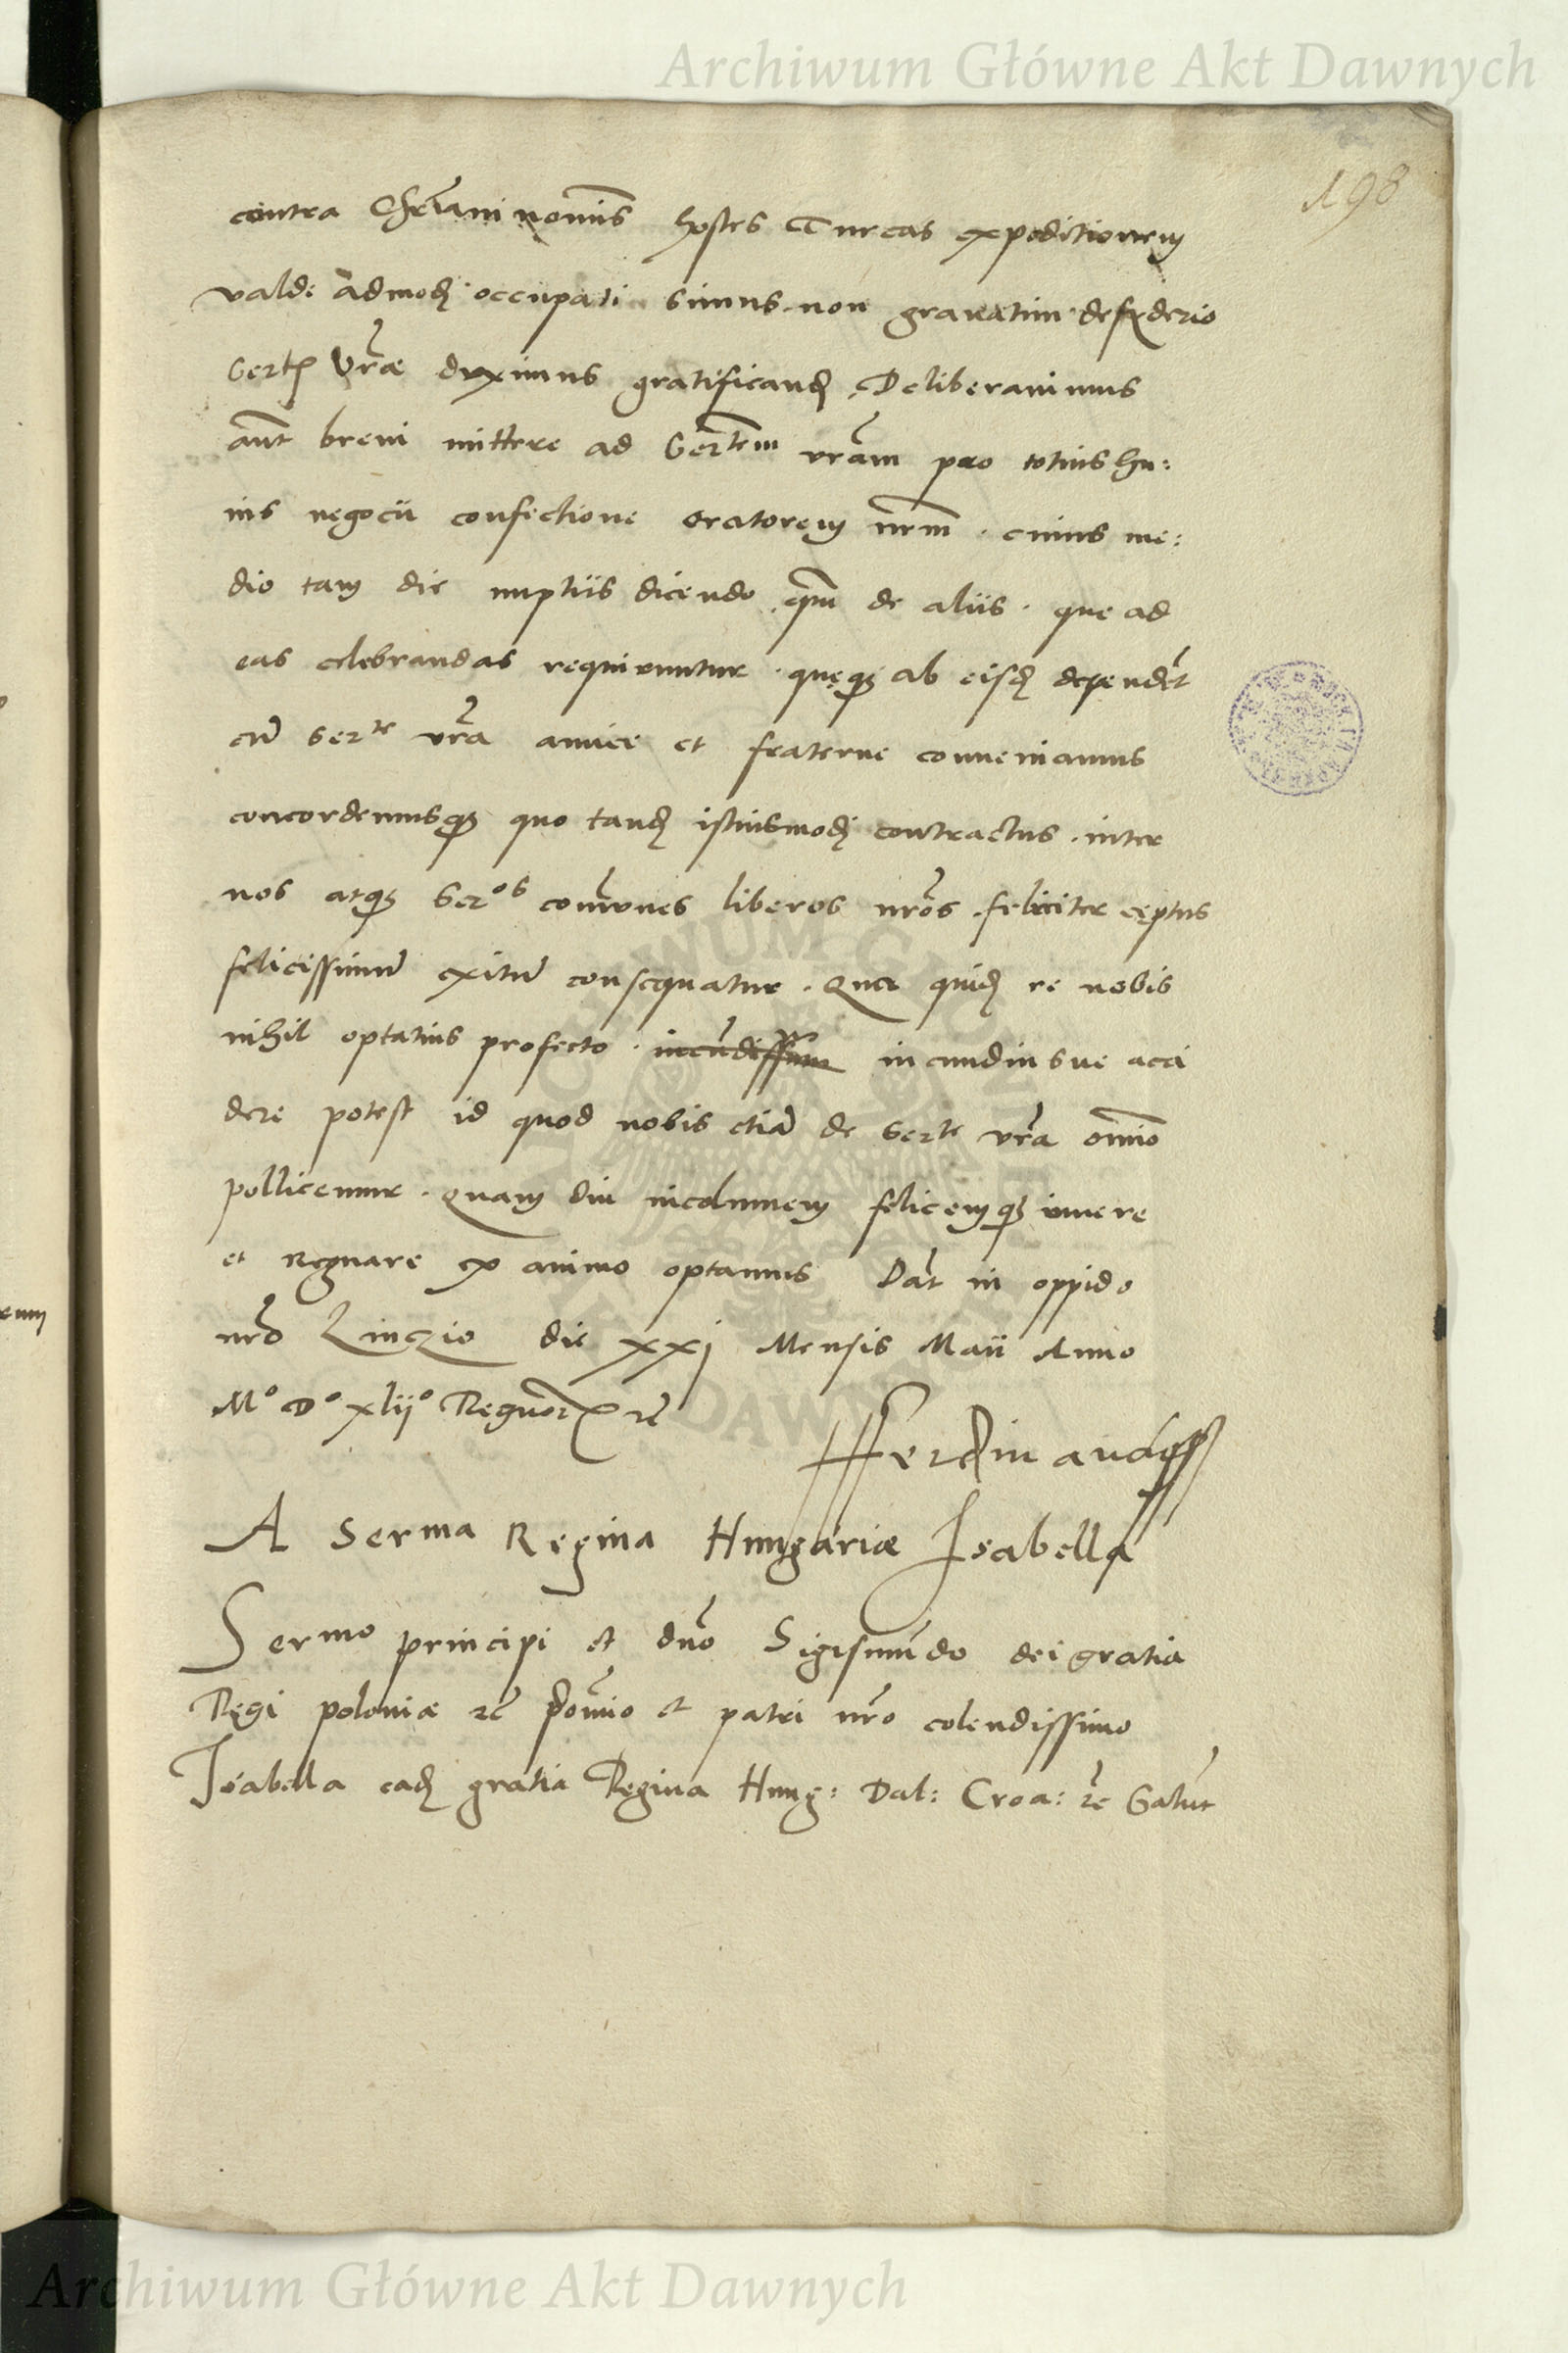 Archiwum Główne Akt Dawnych
198
contra Chrĩani nomĩs hostes Turcas expeditionem
valde admodũ occupati simus non grauatim desyderio
Sertĩ Vrãe duximus gratificandũ Deliberauimus
aũt breui mittere ad Sertem vrãm pro totius hu:
ius negocii confectione oratorem nrm̃ . cuius me:
dio tam die nuptiis dicendo qm̃ de aliis . que ad
eas celebrandas requiruntur . quęq; ab eisd̃ dependẽt
cũ Serte vrã amice et fraterne conueniamus
concordemusq; quo tandẽ istiusmodi contractus . inter
nos atq; Seros com̃unes liberos nrõs . feliciter cęptus
felicissimũ exitũ consequatur . Qua quidẽ re nobis
nihil optatius profecto . iucundiusue acci
dere potest id quod nobis etiã de Serte vrã om̃io
pollicemur . Quam diu incolumem felicemq; viuere
et Regnare ex animo optamus Dat̃ in oppido
nrõ Linczio die xxj Mensis Maii Anno
Mo Do xlijo Regnorũ rc̃
Ferdinandus
A Serma Regina Hungariæ Isabella
Sermo principi et dnõ Sigismũdo dei gratia
Regi poloniæ rc̃ Domĩo et patri nrõ colendissimo
Isabella eadẽ gratia Regina Hung: Dal: Croa: rc̃ Salutẽ
Archiwum Główne Akt Dawnych